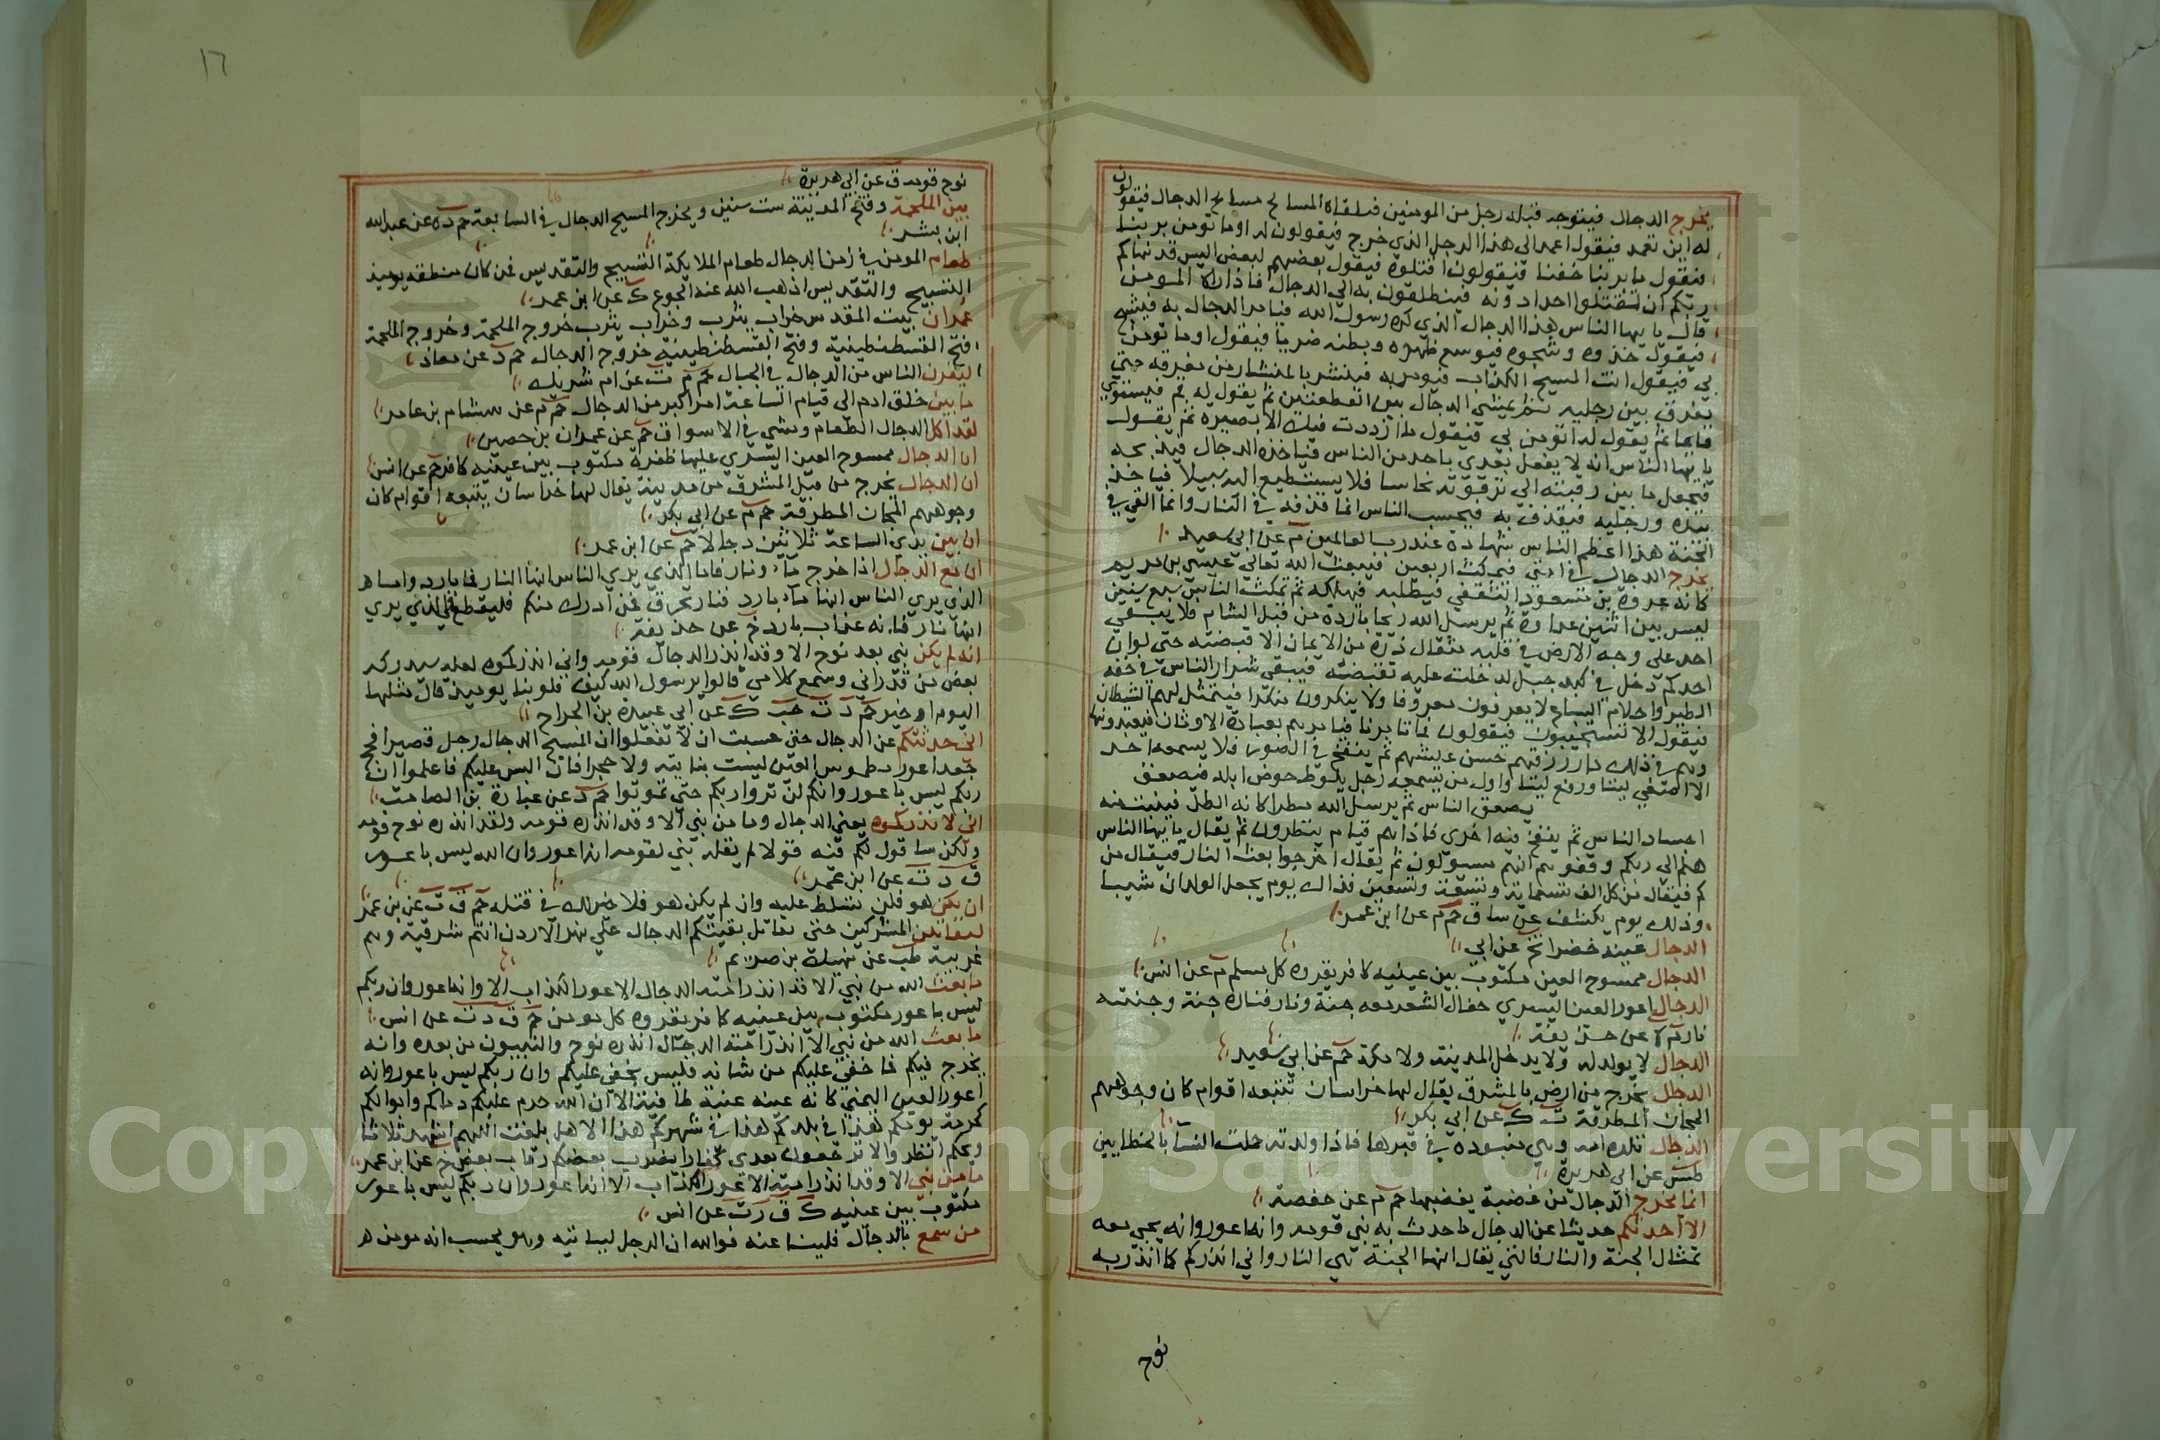 يخرج الدجال فيتوجه قبله رجل من المومنين فيلقاه المسالح مسالح الدجال فيقولون
له اين تعمد فيقول اعمد الى هذا الرجل الذي خرج فيقولون له اوما تومن بربنا
فيقول ما بربنا خفنا فيقولون اقتلوه فيقول بعضهم لبعض اليس قد نهاكم
ربكم ان تقتلوا احدا دونه فينطلقون به الى الدجال فاذا راه المومن
قال يا يها الناس هذا الدجال الذي ذكره رسول الله فيامر الدجال به فيشبح
فيقول خذوه وشجوه فيوسع ظهره وبطنه ضربا فيقول اوما تومن
بي فيقول انت المسيح الكذاب فيومر به فينشر بالمنشار من مفرقه حتى
يفرق بين رجليه ثم يمشي الدجال بين القطعتين ثم يقول له قم فيستوي
قايما ثم يقول له اتومن بي فيقول ما ازددت فيك الا بصيرة ثم يقول
يا يها الناس انه لا يفعل بعدي باحد من الناس فياخذه الدجال فيذبحه
فيجعل ما بين رقبته الى ترقوته نحاسا فلا يستطيع اليه سبيلا فياخذ
بيده ورجليه فيقذف به فيحسب الناس انما قذفه في النار وانما القي في
الجنة هذا اعظم الناس شهادة عند رب العالمين م عن ابي سعيد
يخرج الدجال في امتي فيمكث اربعين فيبعث الله تعالى عيسى بن مريم
كانه عروة بن مسعود الثقفي فيطلبه فيهلكه ثم يمكث الناس سبع سنين
ليس بين اثنين عداوة ثم يرسل الله ريحا باردة من قبل الشام فلا يبقى
احد على وجه الارض في قلبه مثقال ذرة من الايمان الا قبضته حتى لو ان
احدكم دخل في كبد جبل لدخلت عليه تقبضه فيبقى شرار الناس في خفة
الطير واحلام السباع لا يعرفون معروفا ولا ينكرون منكرا فيتمثل لهم الشيطان
فيقول الا تستجيبون فيقولون فما تامرنا فيامرهم بعبادة الاوثان فيعبدونها
وهم في ذلك دار رزقهم حسن عيشهم ثم ينفخ في الصور فلا يسمعه احد
الا اصغى ليتا ورفع ليتا واول من يسمعه رجل يلوط حوض ابله فيصعق
يصعق الناس ثم يرسل الله مطرا كانه الطل فينبت منه
اجساد الناس ثم ينفخ فيه اخرى فاذا هم قيام ينظرون ثم يقال يا يها الناس
هلم الى ربكم وقفوهم انهم مسئولون ثم يقال اخرجوا بعث النار فيقال من
كم فيقال من كل الف تسعماية وتسعة وتسعين فذاك يوم يجعل الولدان شيبا
وذلك يوم يكشف عن ساق حم م عن ابن عمر
الدجال عينه خضرا تخ عن ابي
الدجال ممسوح العين مكتوب بين عينيه كافر يقروه كل مسلم م عن انس
الدجال اعور العين اليسرى جفال الشعر معه جنة ونار فناره جنة وجنته
نار حم م عن حذيفة
الدجال لا يولد له ولا يدخل المدينة ولا مكة حم عن ابي سعيد
الدجال يخرج من ارض بالمشرق يقال لها خراسان تتبعه اقوام كان وجوههم
المجان المطرقة ت ك عن ابي بكر
الدجال تلده امه وهي منبوذة في قبرها فاذا ولدته حملت النسا بالخطايين
طس عن ابي هريرة
انما يخرج الدجال من غضبة يغضبها حم م عن حفصة
الا احدثكم حديثا عن الدجال ما حدث به نبي قومه وانه اعور وانه يجي معه
تمثال الجنة والنار فالتي يقال انها الجنة هي النار واني انذركم كما انذر به
نوح
١٦
نوح قومه ق عن ابي هريرة
بين الملحمة وفتح المدينة ست سنين ويخرج المسيح الدجال في السابعة حم د ه عن عبد الله
ابن بشر
طعام المومن في زمن الدجال طعام الملايكة التسبيح والتقديس فمن كان منطقه يوميذ
التسبيح والتقديس اذهب الله عنه الجوع ك عن ابن عمر
عمران بيت المقدس خراب يثرب وخراب يثرب خروج الملحمة وخروج الملحمة
فتح القسطنطينية وفتح القسطنطينية خروج الدجال حم د عن معاذ
ليفرن الناس من الدجال في الجبال حم م ت عن ام شريك
ما بين خلق ادم الى قيام الساعة امر اكبر من الدجال حم م عن هشام بن عامر
لقد اكل الدجال الطعام ومشى في الاسواق حم عن عمران بن حصين
ان الدجال ممسوح العين اليسرى عليها ظفرة مكتوب بين عينيه كافر حم عن انس
ان الدجال يخرج من قبل المشرق من مدينة يقال لها خراسان يتبعه اقوام كان
وجوههم المجان المطرقة حم م عن ابي بكر
ان بين يدي الساعة ثلاثين دجالا حم عن ابن عمر
ان مع الدجال اذا خرج ماء ونار فاما الذي يرى الناس انها النار فما بارد واما
الذي يرى الناس انها ماء بارد فنار تحرق فمن ادرك منكم فليقع في الذي يرى
انها نار فانه عذاب بارد خ عن حذيفة
انه لم يكن نبي بعد نوح الا وقد انذر الدجال قومه واني انذركموه لعله سيدركه
بعض من قد راني وسمع كلامي قالوا يرسول الله كيف قلوبنا يوميذ قال مثلها
اليوم او خير حم د ت حب ك عن ابي عبيدة بن الجراح
اني حدثتكم عن الدجال حتى حسبت ان لا تعقلوا ان المسيح الدجال رجل قصير افحج
جعد اعور مطموس العين ليست بناتية ولا حجرا فان البس عليكم فاعلموا ان
ربكم ليس باعور وانكم لن تروا ربكم حتى تموتوا حم د عن عبادة بن الصامت
اني لانذركموه يعني الدجال وما من نبي الا وقد انذره قومه ولقد انذره نوح قومه
ولكن ساقول لكم فيه قولا لم يقله نبي لقومه انه اعور وان الله ليس باعور
ق د ت عن ابن عمر
ان يكن هو فلن تسلط عليه وان لم يكن هو فلا خير لك في قتله حم ق ت عن بن عمر
ليقاتلن المشركين حتى يقاتل بقيتكم الدجال على نهر الاردن انتم شرقيه وهم
غربيه طب عن نهيك بن صريم
ما بعث الله من نبي الا قد انذر امته الدجال الاعور الكذاب الا وانه اعور وان ربكم
ليس باعور مكتوب بين عينيه كافر يقروه كل مومن حم ق د ت عن انس
ما بعث الله من نبي الا انذر امته الدجال انذره نوح والنبيون من بعده وانه
يخرج فيكم فما خفي عليكم من شانه فليس يخفى عليكم وان ربكم ليس باعور وانه
اعور العين اليمنى كانه عينه عنبة طافية الا ان الله حرم عليكم دماكم واموالكم
كحرمة يومكم هذا في بلدكم هذا في شهركم هذا الا هل بلغت اللهم اشهد ثلاثا
ويحكم انظروا لا ترجعوا بعدي كفارا يضرب بعضكم رقاب بعض خ عن ابن عمر
ما من نبي الا وقد انذر امته الاعور الكذاب الا انه اعور وان ربكم ليس باعور
مكتوب بين عينيه ك ف ر ت عن انس
من سمع بالدجال فلينا عنه فوالله ان الرجل لياتيه وهو يحسب انه مومن
Copyright © King Saud University